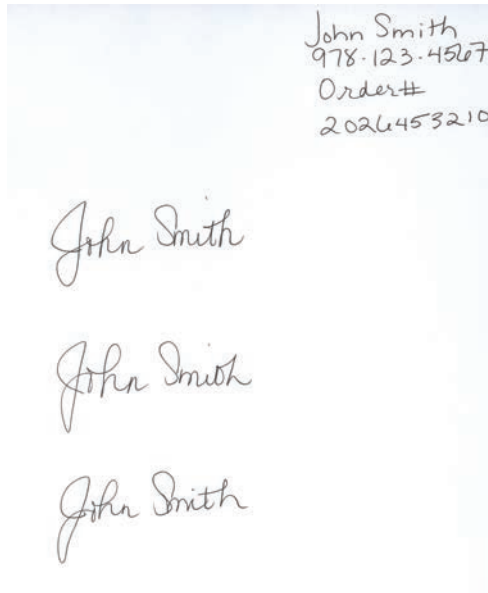 John Smith
978·123·4567
Order#
2026453210
John Smith
John Smith
John Smith